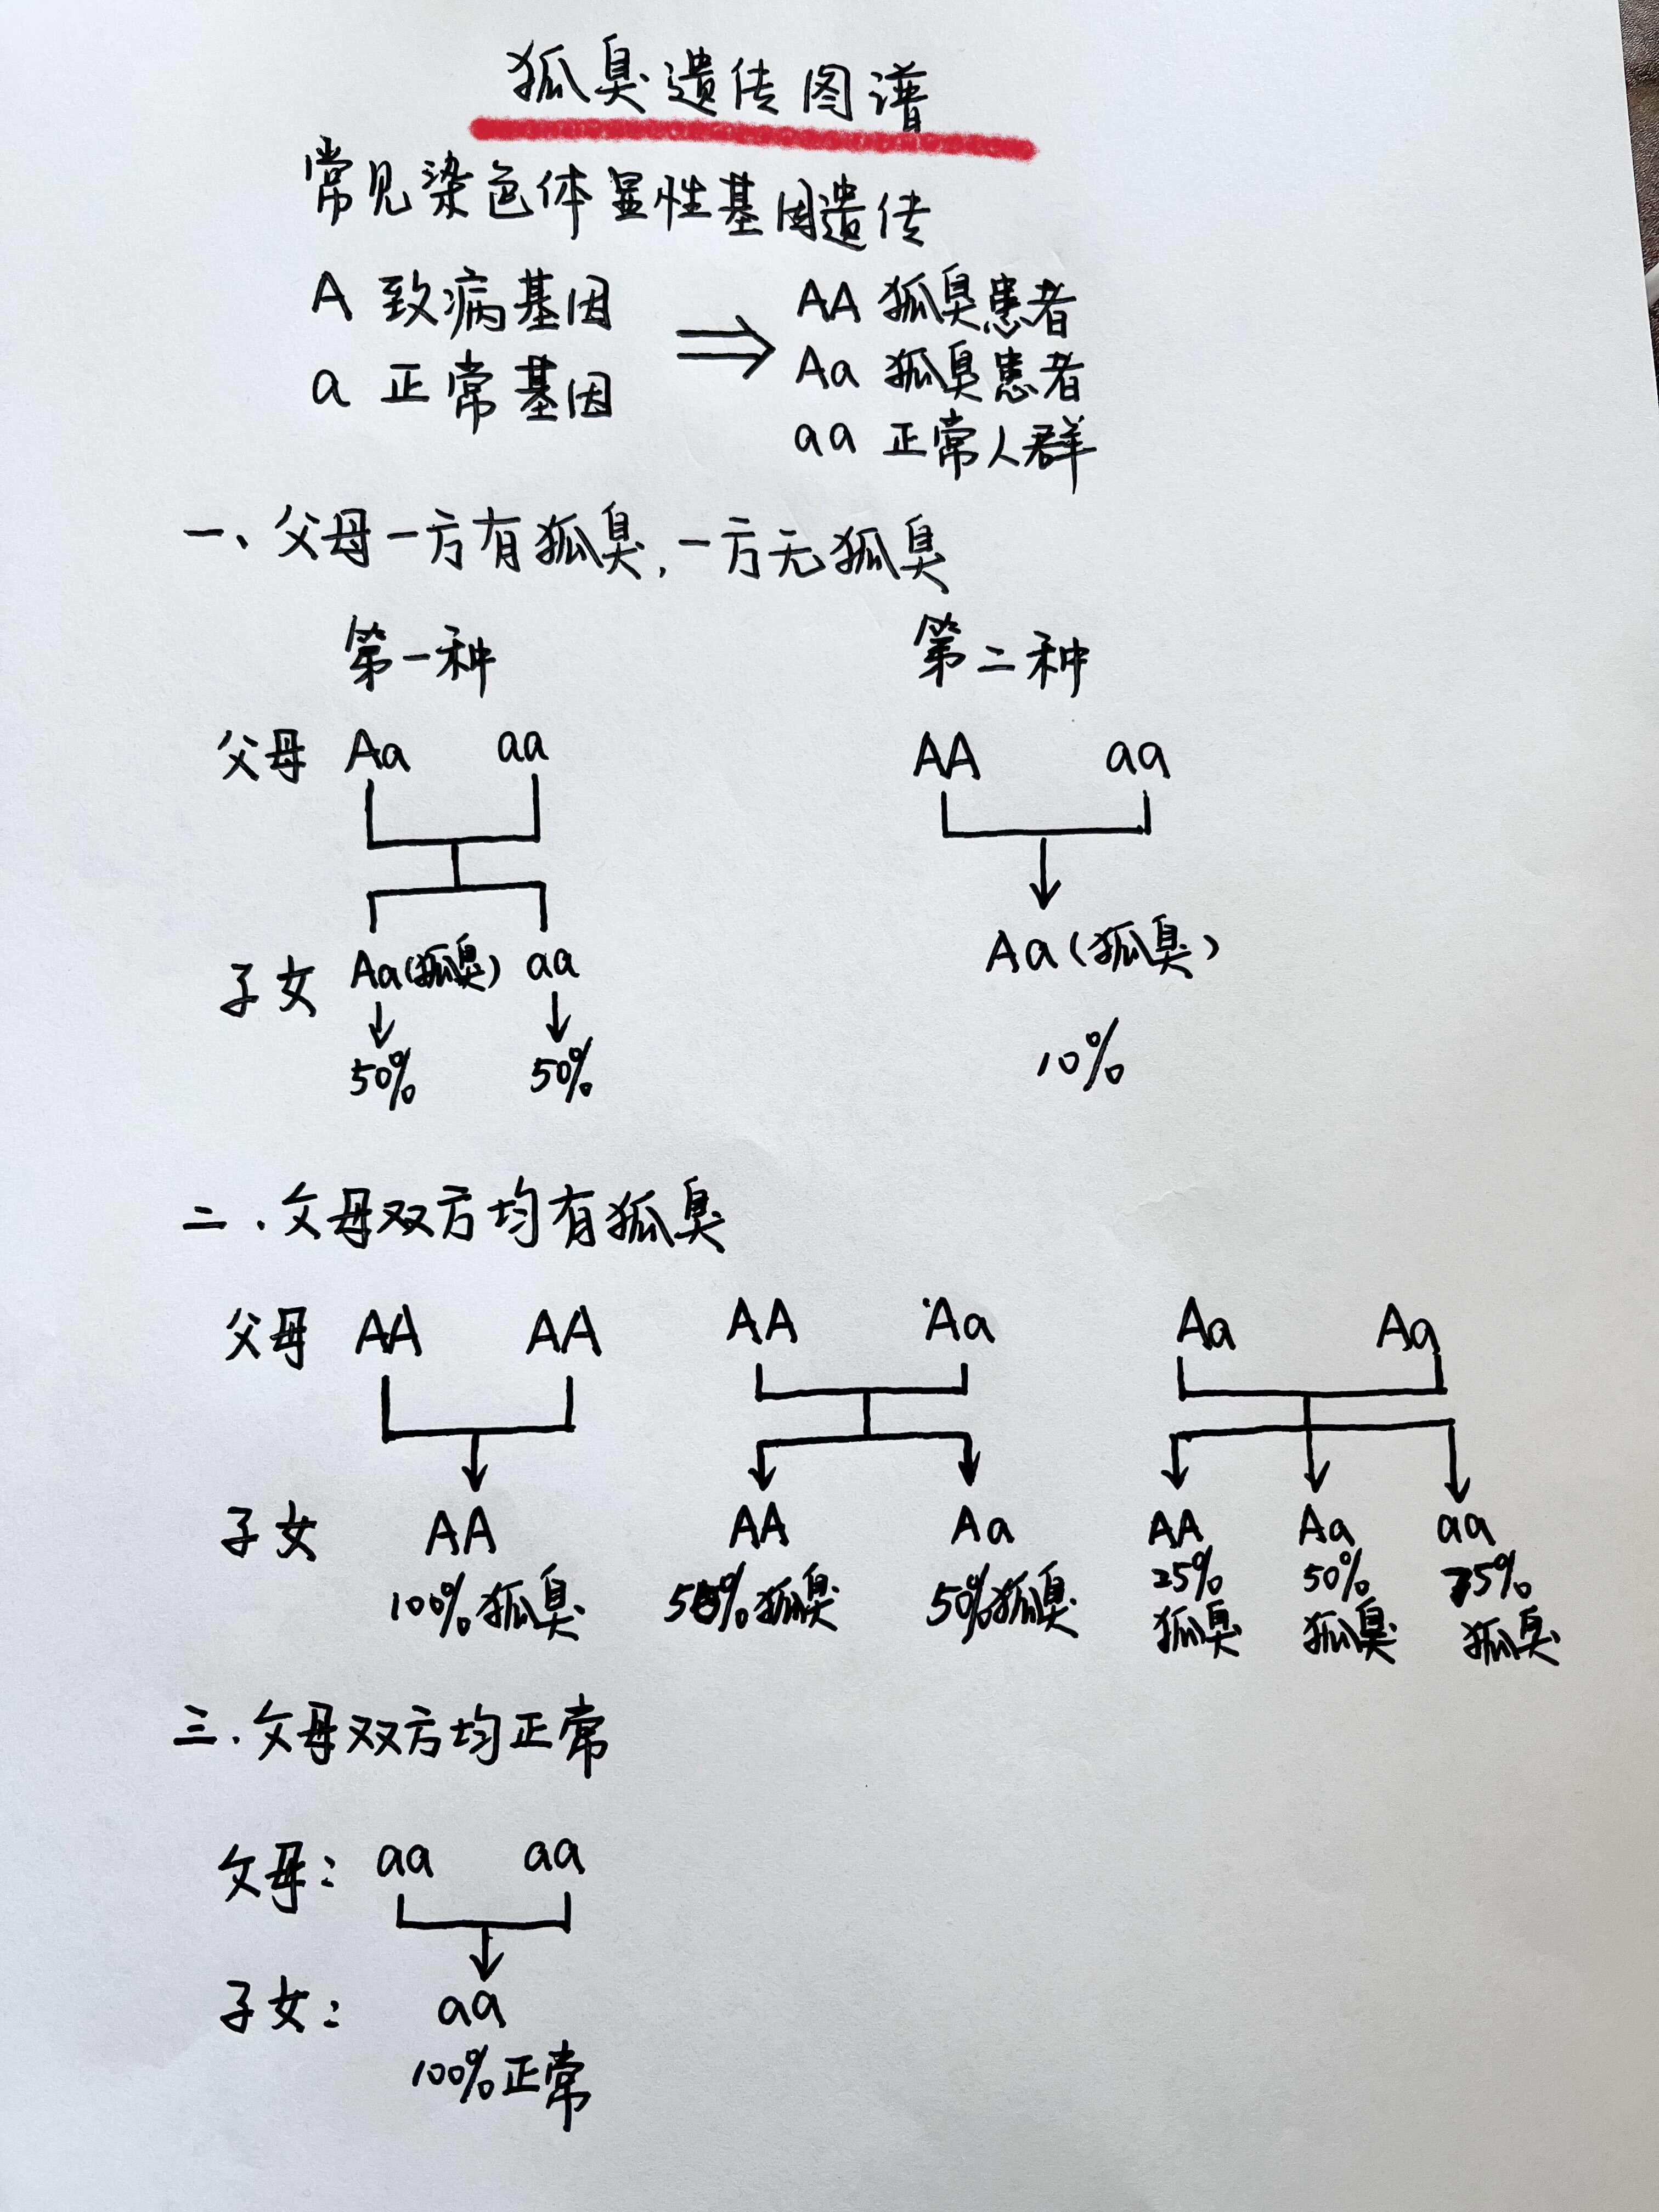 狐臭遗传图谱
常见染色体显性基因遗传
A 致病基因
a 正常基因
AA 狐臭患者
Aa 狐臭患者
aa 正常人群
一、父母一方有狐臭,一方无狐臭
第一种 第二种
父母 Aa aa AA aa
子女 Aa(狐臭) aa Aa(狐臭)
50% 50% 10%
二.父母双方均有狐臭
父母 AA AA AA Aa Aa Aa
子女 AA AA Aa AA Aa aa
100%狐臭 50%狐臭 50%狐臭 25% 50% 75%
狐臭 狐臭 狐臭
三.父母双方均正常
父母: aa aa
子女: aa
100%正常